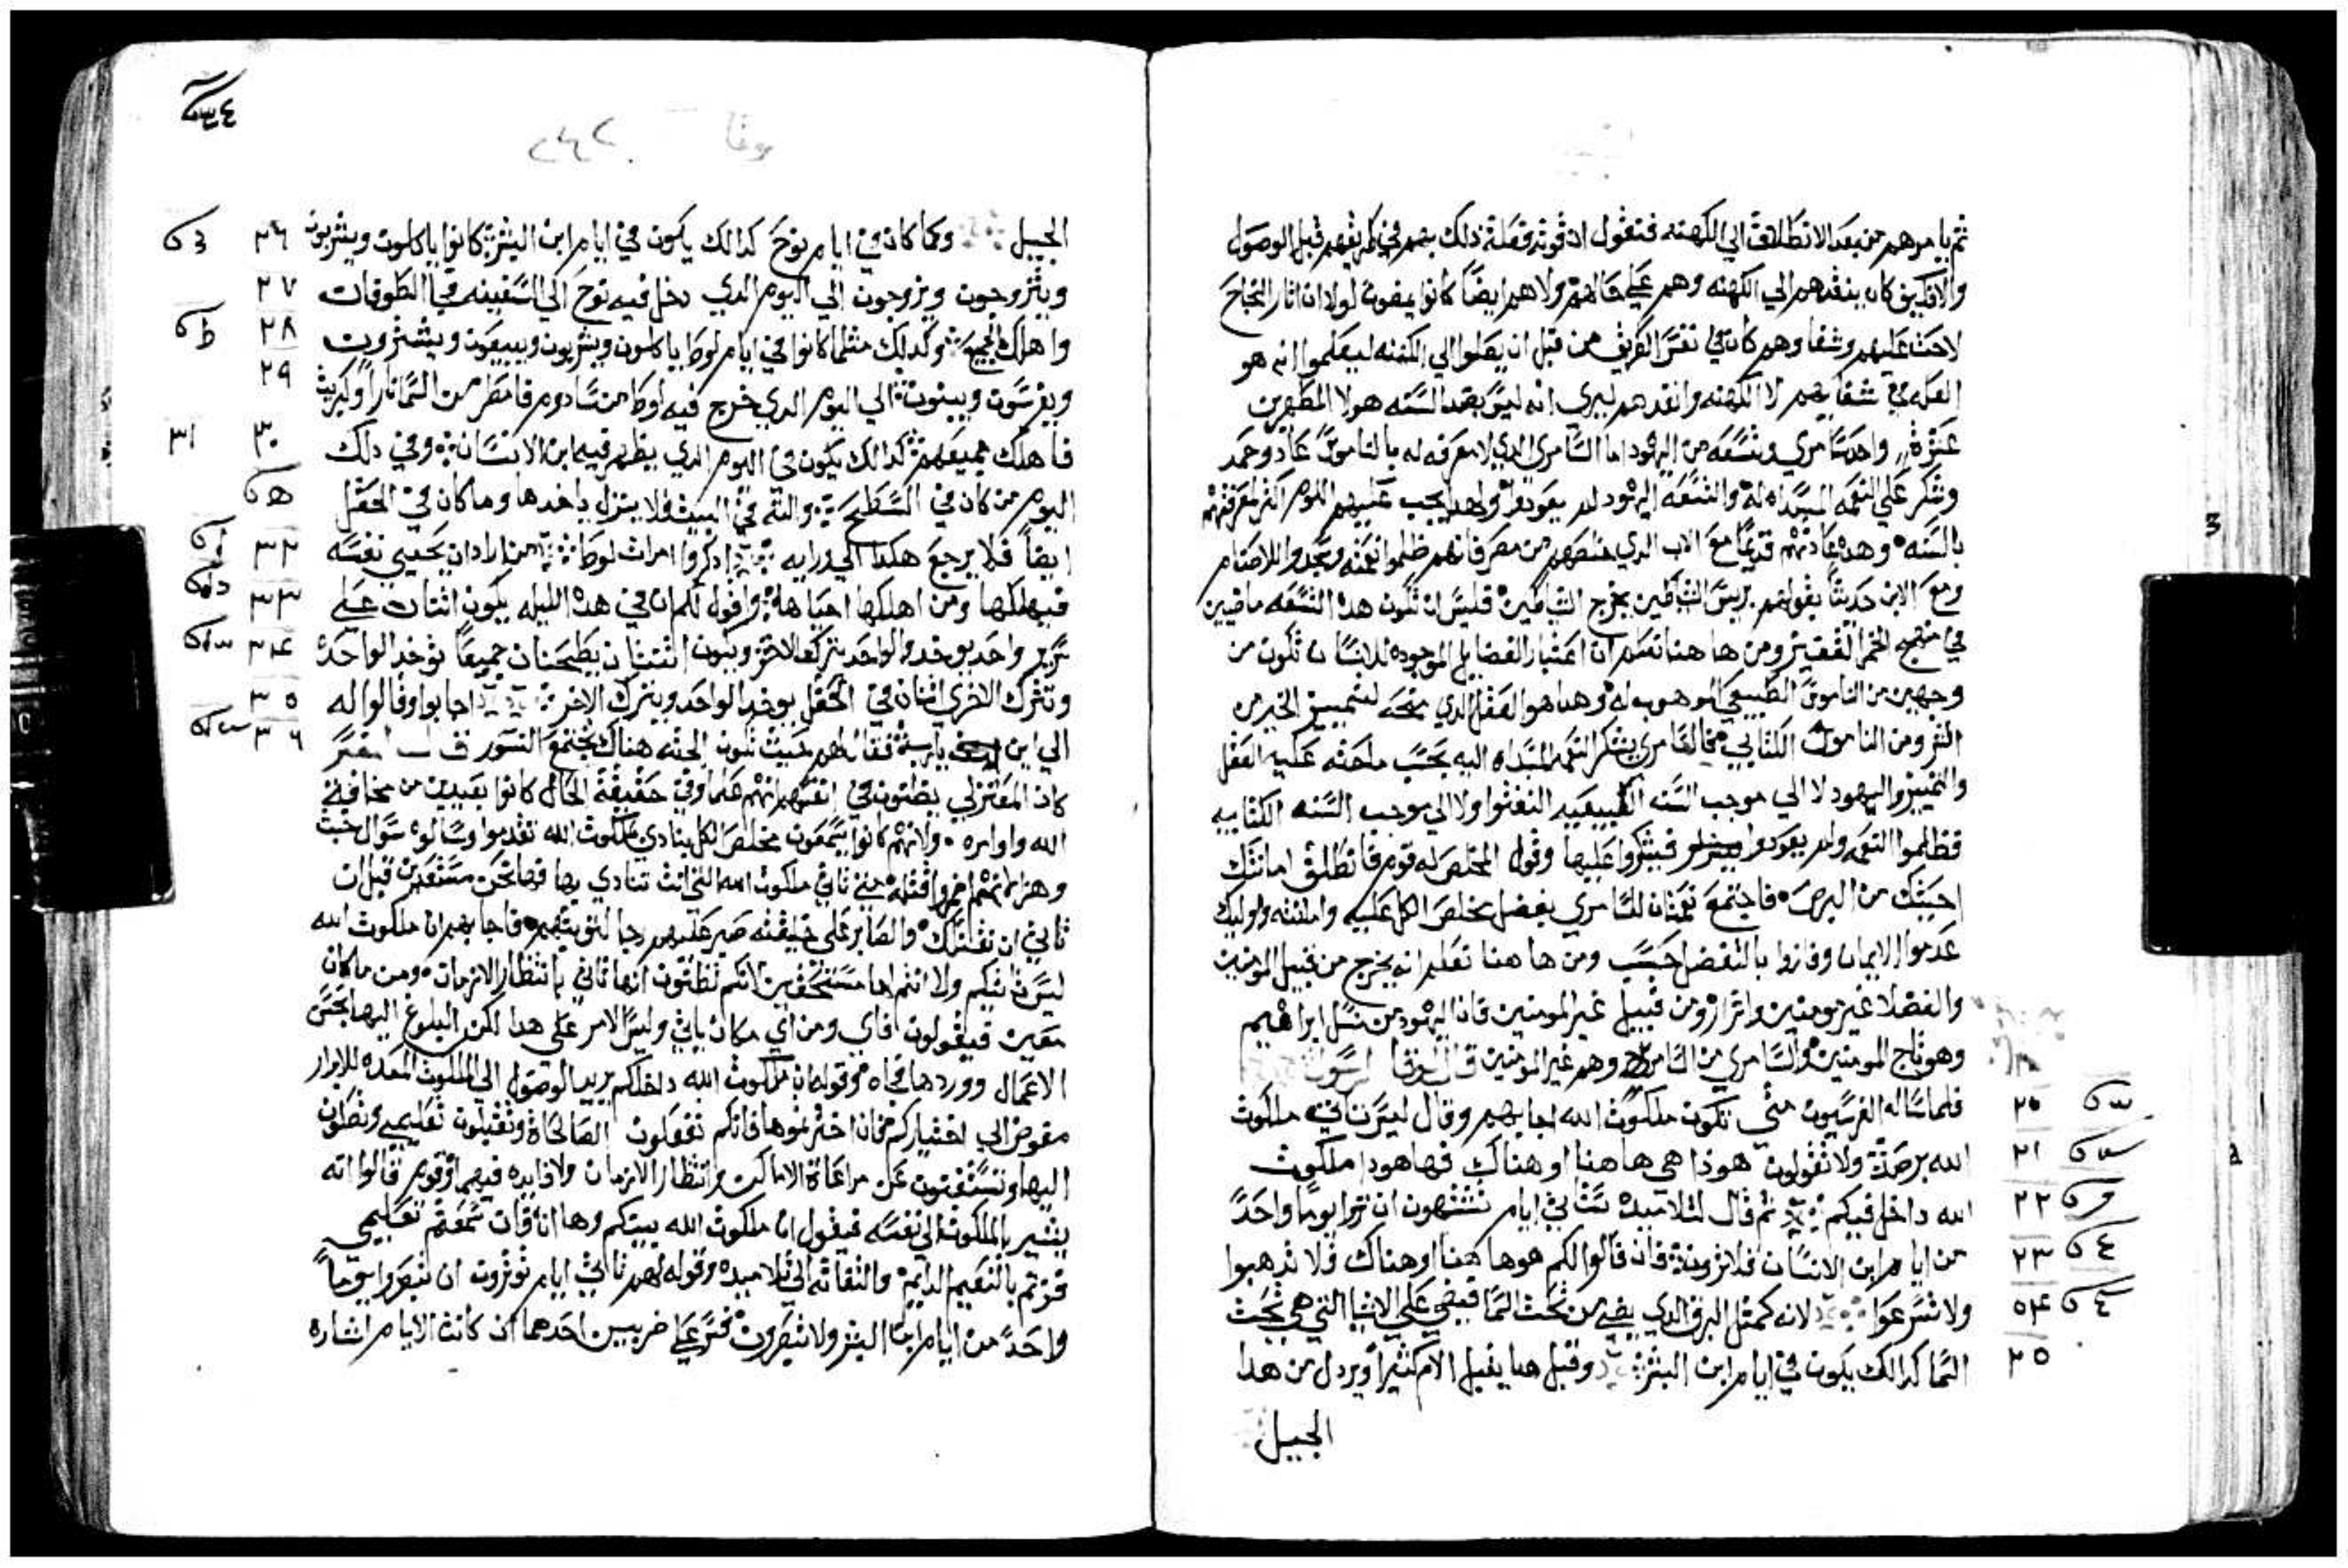 ثم يامرهم من بعد الانطلاق الي الكهنه فنقول ان قوته فعلة ذلك بهم في طريقهم قبل الوصول
والا فكيف كان ينفدهم الي الكهنه وهم علي حالهم ولا هم ايضًا كانوا يمضون لولا ان اثار النجاح
لاحت عليهم وشفاوهم كان في نفس الطريق من قبل ان يصلوا الي الكهنه ليعلموا انه هو
العله في شفايهم لا الكهنه وانفدهم ليري انه ليس بضد السنه هولا المطهرين
عشرة واحد سامري وتسعه من اليهود اما السامري الدي لا معرفه له بالناموس عاد وحمد
وشكر علي النعمه المسداه له والتسعه اليهود لم يعودوا ولهدا يجب عليهم اللوم اكثر لمعرفتهم
بالسنه وهده عادتهم قديمًا مع الاب الدي خلصهم من مصر فانهم ظلموا نعمته وسجدوا للاصنام
ومع الابن حديثًا بقولهم بريس الشياطين يخرج الشياطين فليس ان تكون هده التسعه ماضيين
في منهج الخمر العقيق ومن ها هنا نعلم ان اعتبار الفضايل الموجوده للانسان تكون من
وجهين من الناموس الطبيعي الموهوب له وهدا هو العقل الدي منحه لتمييز الخير من
الشر ومن الناموس الكتابي فالسامري بشكر النعم المسداه اليه بحسب ما حثه عليه العقل
والتمييز واليهود لا الي موجب السنه الطبيعيه التفتوا ولا الي موجب السنه الكتابيه
فظلموا النعمه ولم يعودوا فيشكروا عليها وقول المخلص له قوم فانطلق امانتك
احيتك من البرص فاجتمع نعمتان للسامري بفضل مخلص الكل عليه وامانته واوليك
عدموا الايمان وفازوا بالتفضل حسب ومن ها هنا تعلم انه يخرج من قبيل المومنين
والفضلا غير مومنين واشرار ومن قبيل غير المومنين فان اليهود من نسل ابراهيم
وهو تاج المومنين والسامري من السامره وهم غير المومنين قال لوقا الرسول
فلما ساله الفرسيون متي تكون ملكوت الله اجابهم وقال ليس تاتي ملكوت ٢٠
الله برصد ولا تقولون هوذا هي هاهنا او هناك فها هودا ملكوت ٢١
الله داخل فيكم ثم قال لتلاميده ستاتي ايام تشتهون ان تروا يومًا واحدً ٢٢
من ايام ابن الانسان فلا ترونه فان قالوا لكم هوها هنا او هناك فلا تدهبوا ٢٣
ولا تسرعوا لانه كمتل البرق الدي يضي من تحت السما فيضي علي الاشيا التي هي تحت ٢٤
السما كدالك يكون في ايام ابن البشر وقبل هدا يقبل الام كثيرًا ويردل من هدا ٢٥
الجيل
٢٤٢ لوقا
الجيل وكما كان في ايام نوح كدالك يكون في ايام ابن البشر كانوا ياكلون ويشربون ٢٦
ويتزوجون ويزوجون الي اليوم الدي دخل فيه نوح الي السفينه في الطوفان ٢٧
واهلك الجميع وكدلك مثلما كانوا في ايام لوط ياكلون ويشربون ويبيعون ويشترون ٢٨
ويغرسون ويبنون الي اليوم الدي خرج فيه لوط من سادوم فامطر من السما نارًا وكبريت ٢٩
فاهلك جميعهم كدالك يكون في اليوم الدي يظهر فيه ابن الانسان وفي دلك ٣٠ ٣١
اليوم من كان في السطح وانيته في البيت فلا ينزل ياخدها وما كان في الحقل
ايضًا فلا يرجع هكدا الي ورايه ادكروا امرات لوط من اراد ان يحيي نفسه ٣٢
فيهلكها ومن اهلكها احياها واقول لكم ان في هده الليله يكون اثنان علي ٣٣
سرير واحد يوخد والواحد يترك الاخر ويكون اثنتان يطحنان جميعًا توخد الواحده ٣٤
وتترك الاخري اثنان في الحقل يوخد الواحد ويترك الاخر اجابوا وقالوا له ٣٥
الي اين يارب فقال لهم حيث تكون الجثه هناك تجتمع النسور المفسر ٣٦
كان المعتزلي يظنون في انفسهم انهم علما وفي حقيقة الحال كانوا بعيدين من مخافة
الله واوامره ولانهم كانوا يسمعون مخلص الكل ينادي بملكوت الله تقدموا وسالوه سوال خبث
ليس تاتيكم ولا انتم لها مستحقين لانكم تظنون انها تاتي بانتظار الازمان ومن مكان
معين فيقولون افاي ومن اي مكان ياتي وليس الامر علي هدا لكن البلوغ اليها بحسن
الاعمال وورودها فجاه وقوله ان ملكوت الله داخلكم يريد الوصول الي الملكوت المعده للابرار
مفوض الي اختياركم فان اخترتموها فانكم تفعلون الصالحات وتقبلون تعليمي وتصلون
اليها وتستغنون عن مراعاة الاماكن وانتظار الازمان ولا فايده فيهما وقوم قالوا انه
يشير بالملكوت الي نفسه فيقول ان ملكوت الله بينكم وها انا فان سمعتم تعاليمي
فزتم بالنعيم الدايم والتفاته الي تلاميده وقوله لهم تاتي ايام توثرون ان تبصروا يومًا
واحدً من ايام ابن البشر ولا تبصرون فسر علي ضربين احدهما ان كانت الايام اشاره